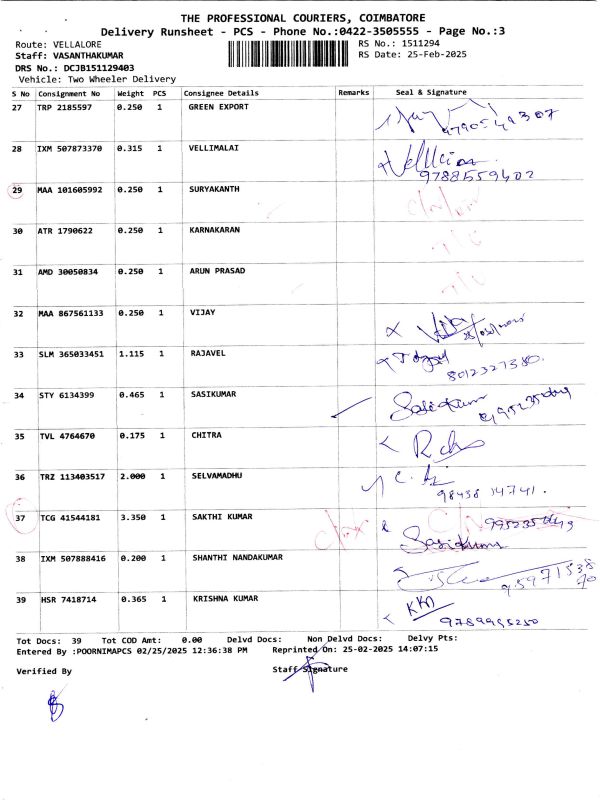 THE PROFESSIONAL COURIERS, COIMBATORE
Delivery Runsheet - PCS - Phone No.:0422-3505555 - Page No.:3
Route: VELLALORE RS No.: 1511294
Staff: VASANTHAKUMAR RS Date: 25-Feb-2025
DRS No.: DCJB151129403
Vehicle: Two Wheeler Delivery
S No Consignment No Weight PCS Consignee Details Remarks Seal & Signature
27 TRP 2185597 0.250 1 GREEN EXPORT
28 IXM 507873370 0.315 1 VELLIMALAI
9788559402
29 MAA 101605992 0.250 1 SURYAKANTH
30 ATR 1790622 0.250 1 KARNAKARAN
31 AMD 30050834 0.250 1 ARUN PRASAD
32 MAA 867561133 0.250 1 VIJAY
33 SLM 365033451 1.115 1 RAJAVEL
8012327380.
34 STY 6134399 0.465 1 SASIKUMAR Sasikumar
35 TVL 4764670 0.175 1 CHITRA
36 TRZ 113403517 2.000 1 SELVAMADHU
98438 14741.
37 TCG 41544181 3.350 1 SAKTHI KUMAR
Sasikumar
38 IXM 507888416 0.200 1 SHANTHI NANDAKUMAR
39 HSR 7418714 0.365 1 KRISHNA KUMAR KKA
9789995250
Tot Docs: 39 Tot COD Amt: 0.00 Delvd Docs: Non Delvd Docs: Delvy Pts:
Entered By :POORNIMAPCS 02/25/2025 12:36:38 PM Reprinted On: 25-02-2025 14:07:15
Verified By Staff Signature